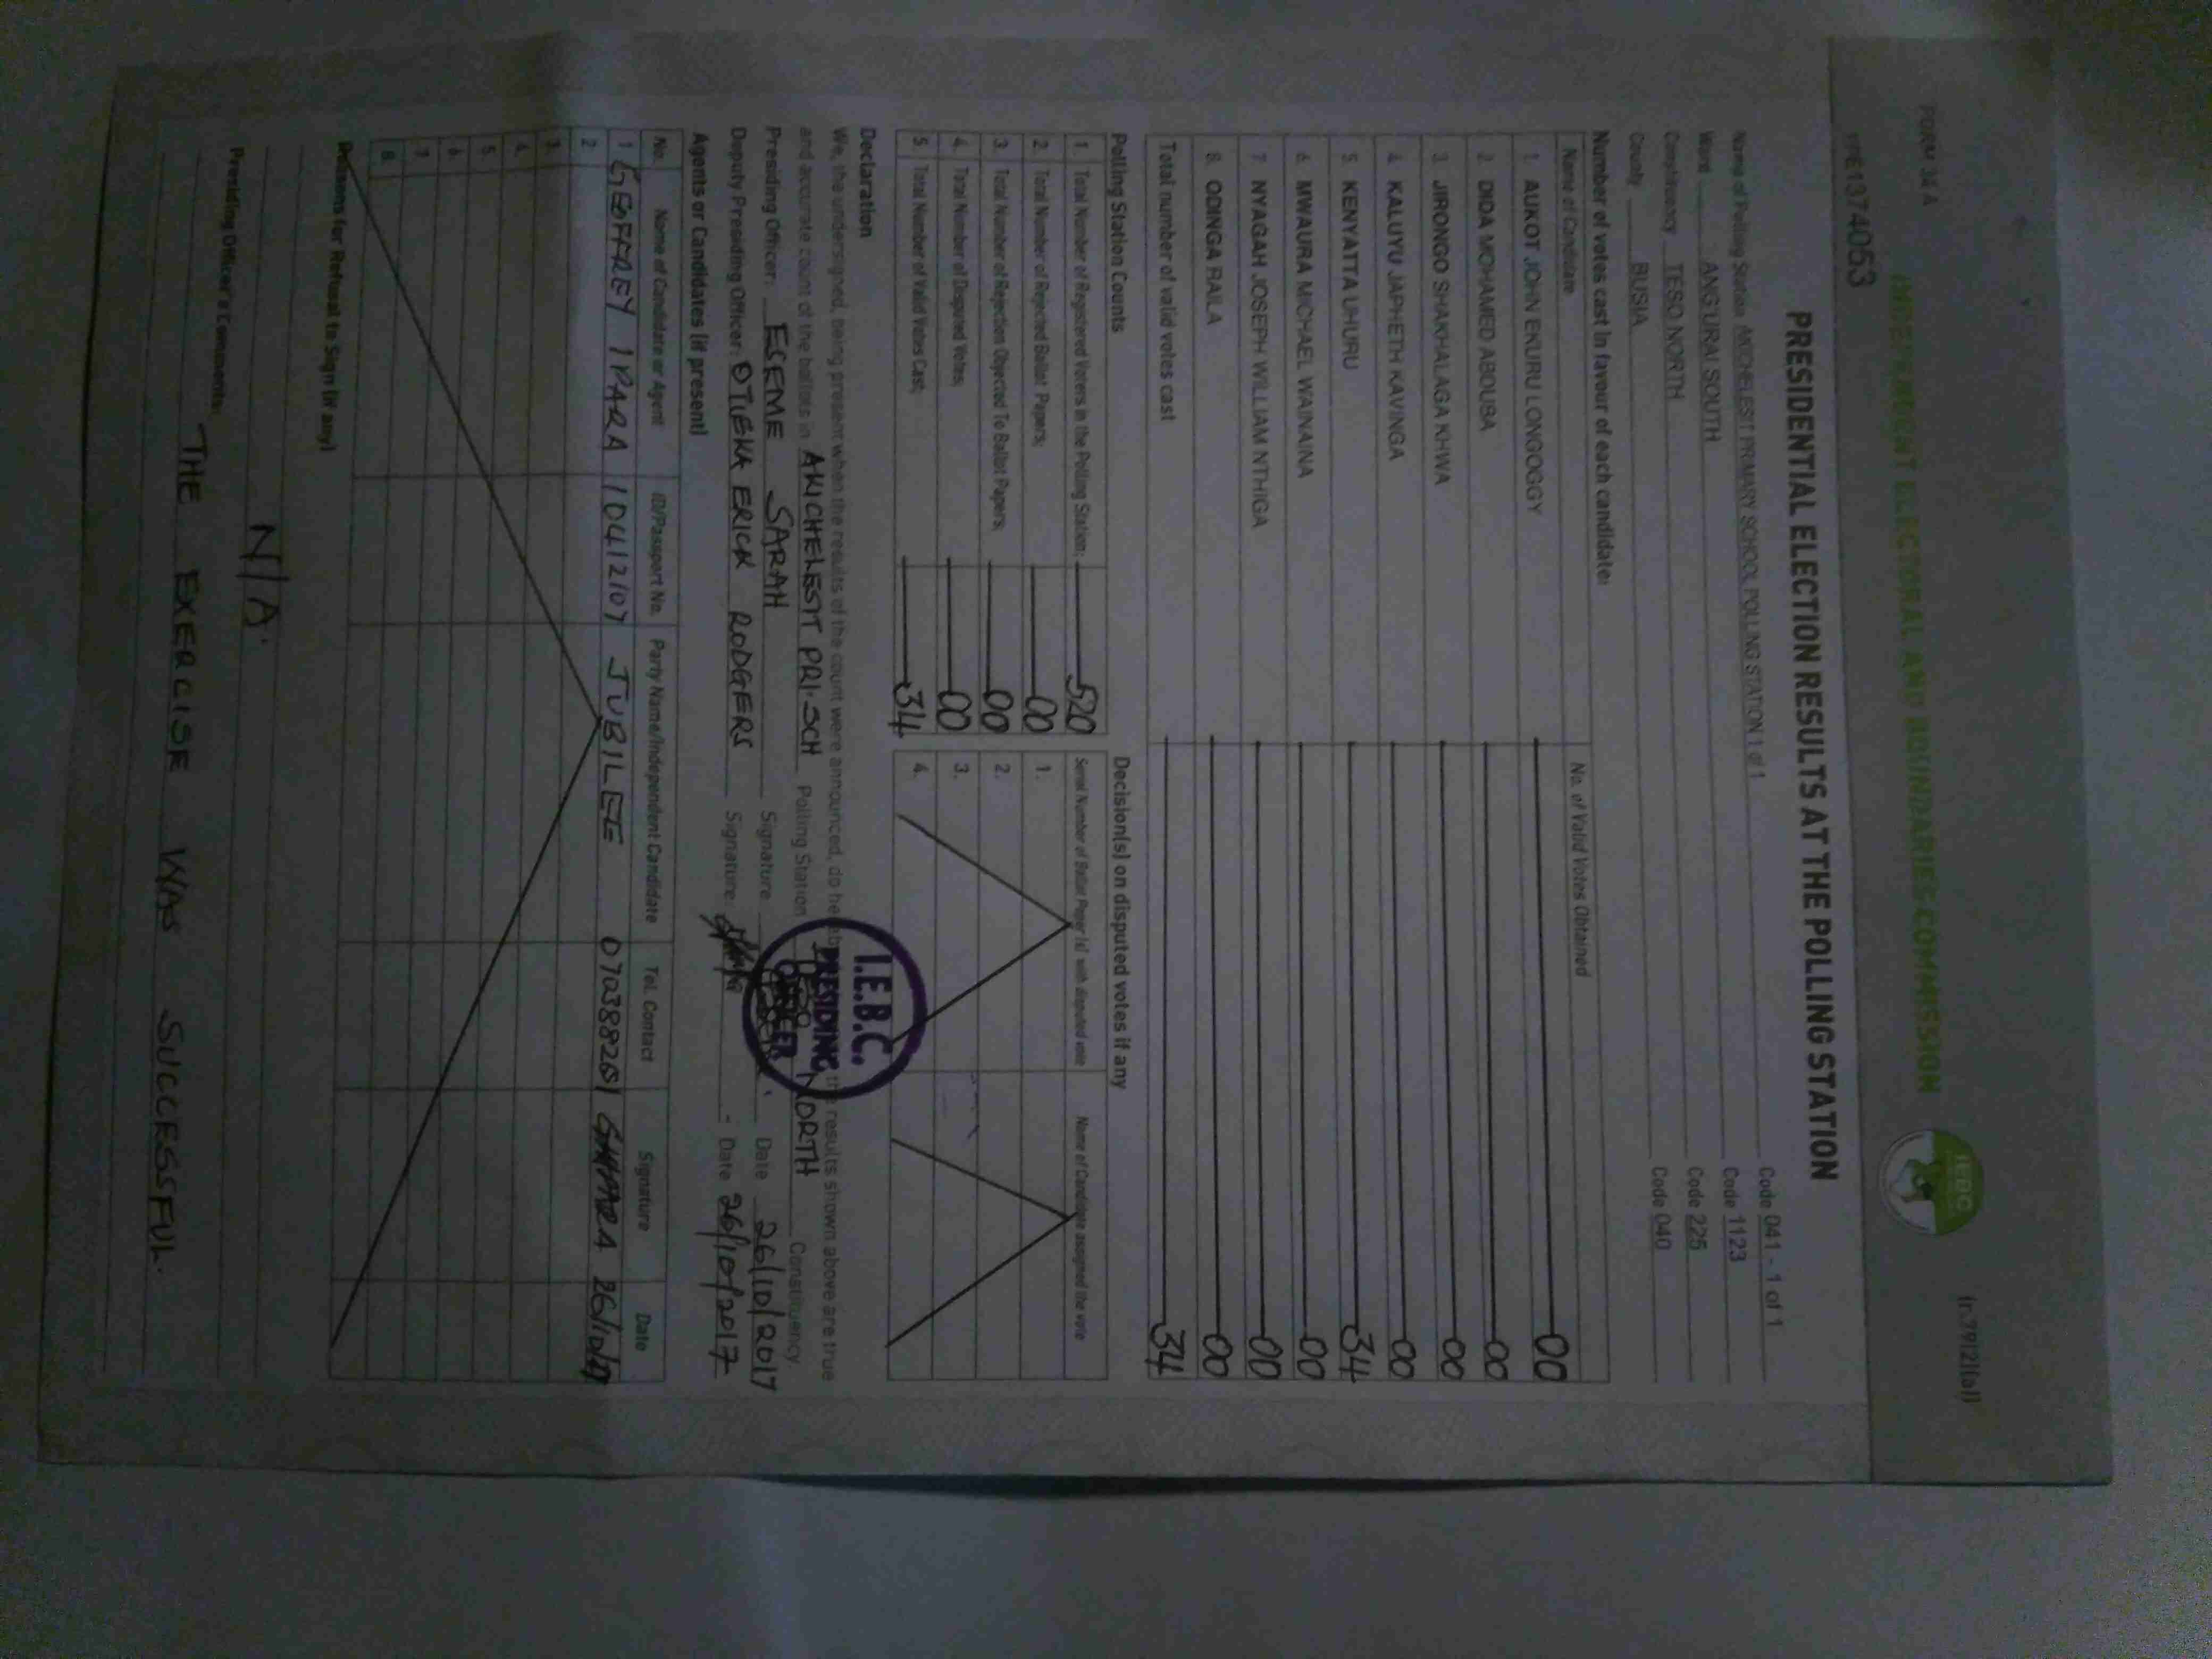 FORM 34 A
(r.79(2)(a))
INDEPENDENT ELECTORAL AND BOUNDARIES COMMISSION
IEBC
PRESIDENTIAL ELECTION RESULTS AT THE POLLING STATION
Name of Polling Station AKICHELESIT PRIMARY SCHOOL POLLING STATION 1 of 1 Code 041 - 1 of 1
Ward ANG'URAI SOUTH Code 1123
Constituency TESO NORTH Code 225
County BUSIA Code 040
Number of votes cast in favour of each candidate:
Name of Candidate No. of Valid Votes Obtained
1. AUKOT JOHN EKURU LONGOGGY 00
2. DIDA MOHAMED ABDUBA 00
3. JIRONGO SHAKHALAGA KHWA 00
4. KALUYU JAPHETH KAVINGA 00
5. KENYATTA UHURU 34
6. MWAURA MICHAEL WAINAINA 00
7. NYAGAH JOSEPH WILLIAM NTHIGA 00
8. ODINGA RAILA 00
Total number of valid votes cast 34
Polling Station Counts
1. Total Number of Registered Voters in the Polling Station; 520
2. Total Number of Rejected Ballot Papers; 00
3. Total Number of Rejection Objected To Ballot Papers; 00
4. Total Number of Disputed Votes; 00
5. Total Number of Valid Votes Cast; 34
Decision(s) on disputed votes if any
Serial Number of Ballot Paper (s) with disputed vote Name of Candidate assigned the vote
1.
2.
3.
4.
Declaration
We, the undersigned, being present when the results of the count were announced, do hereby the results shown above are true
and accurate count of the ballots in AKICHELESIT PRI. SCH Polling Station NORTH Constituency
Presiding Officer: ESEME SARAH Signature Date 26/10/2017
Deputy Presiding Officer: OTIEKA ERICK RODGERS Signature: Date 26/10/2017
I.E.B.C.
PRESIDING
OFFICER
Agents or Candidates (if present)
No. Name of Candidate or Agent ID/Passport No. Party Name/Independent Candidate Tel. Contact Signature Date
1 GEOFFREY IPARA 10412107 JUBILEE 0703882651 26/10/17
2
3.
4.
5.
6
7
8.
Reasons for Refusal to Sign (if any)
N/A.
Presiding Officer's Comments:
THE EXERCISE WAS SUCCESSFUL.